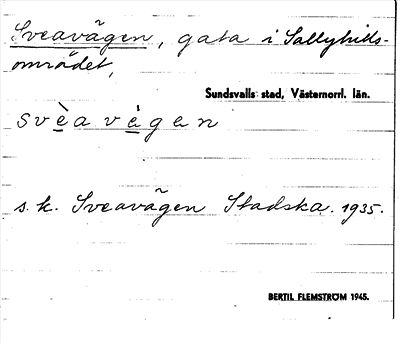 Sveavägen, gata i Sallyhills-
området,
Sundsvalls stad, Västernorrl. län.
svèavègen
s. k. Sveavägen Stadska. 1935.
BERTIL FLEMSTRÖM 1945.